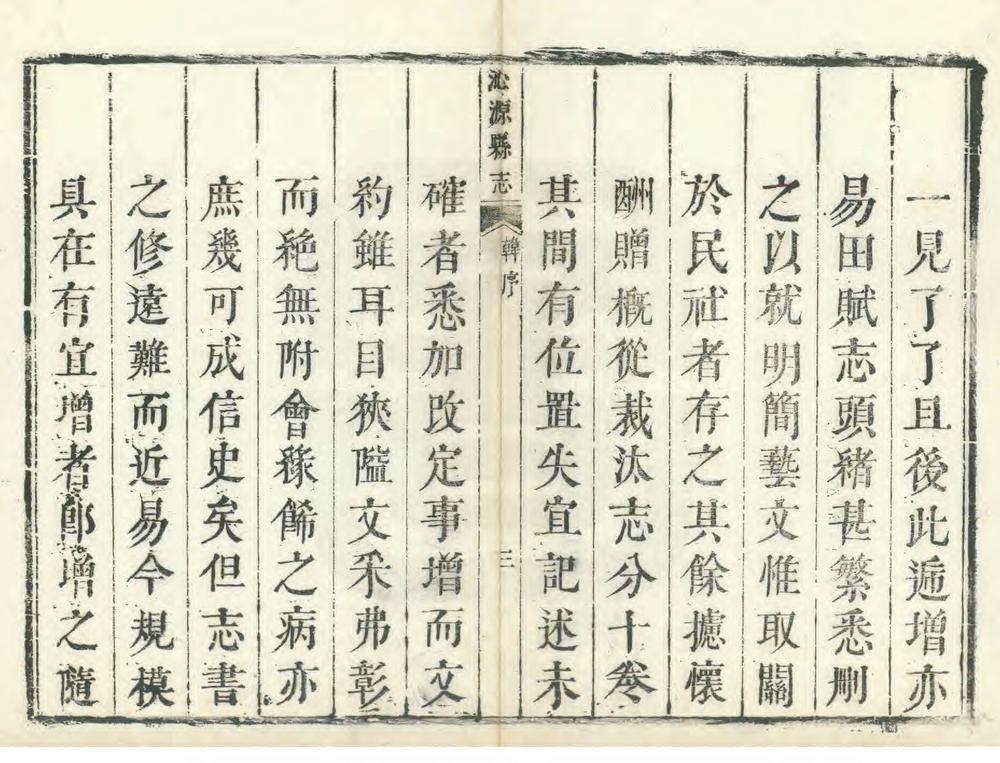 一見了了且後此遞增亦
易田賦志頭緒甚繁悉刪
之以就明簡藝文惟取關
於民社者存之其餘攄懷
酬贈概從裁汰志分十卷
其間有位置失宜記述未
沁源縣志 韓序 三
確者悉加改定事增而文
約雖耳目狹隘文采弗彰
而絶無附會緣餙之病亦
庶幾可成信史矣但志書
之修遠難而近易今規模
具在有宜增者郎增之隨